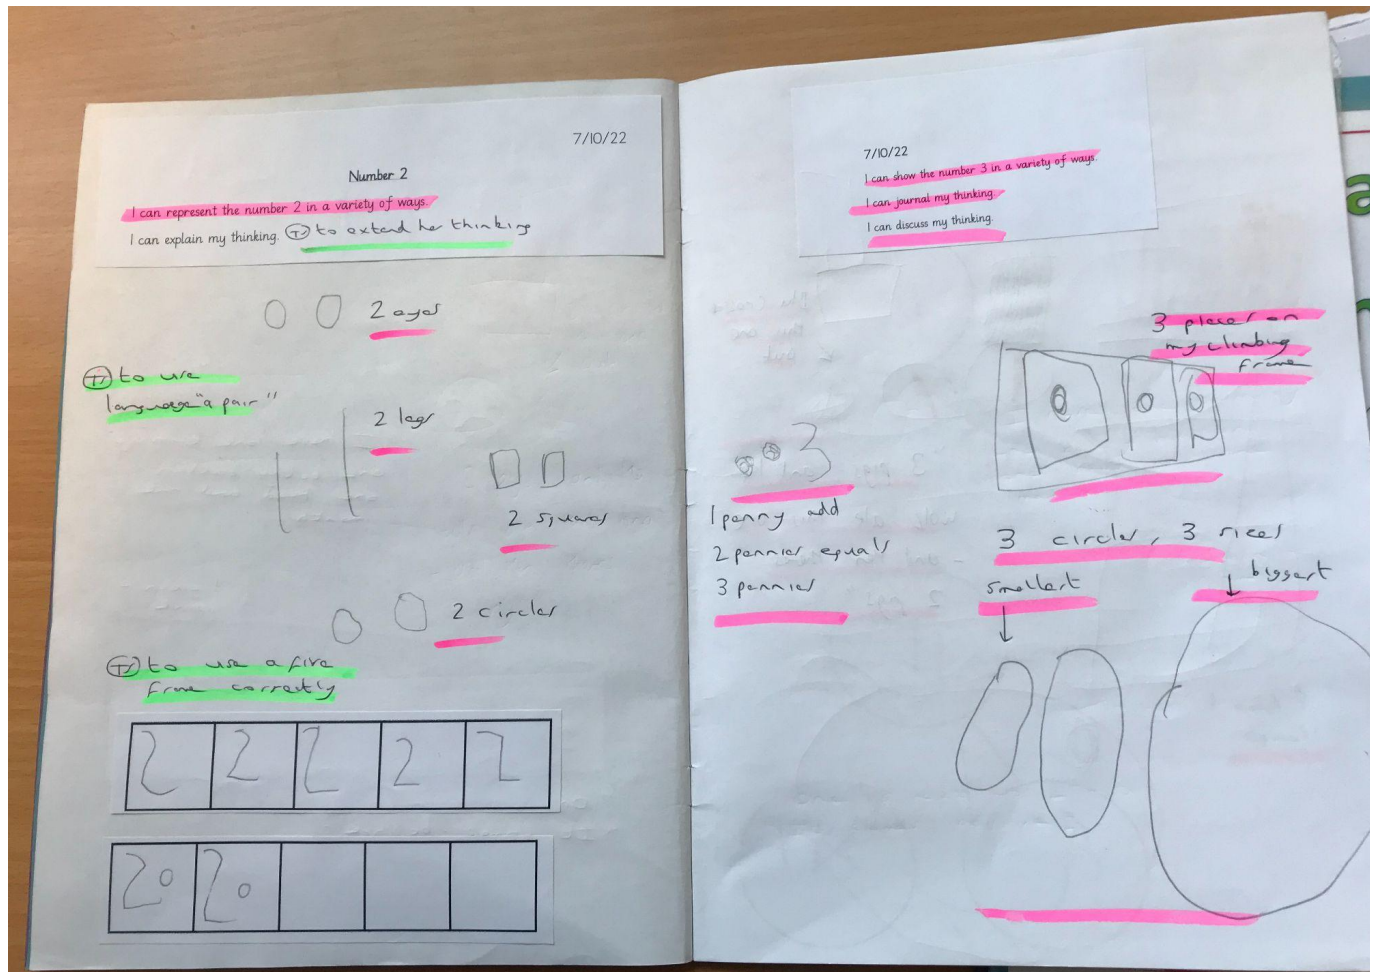 7/10/22
Number 2
I can represent the number 2 in a variety of ways.
I can explain my thinking. TS to extend her thinking
2 eyes
TS to use
language "a pair"
2 legs
2 squares
2 circles
TS to use a five
frame correctly
2 2 2 2 2
2 2
7/10/22
I can show the number 3 in a variety of ways.
I can journal my thinking.
I can discuss my thinking.
3 places on
my climbing
frame
3
1 penny add
2 pennies equals
3 pennies
3 circles, 3 sizes
smallest
biggest